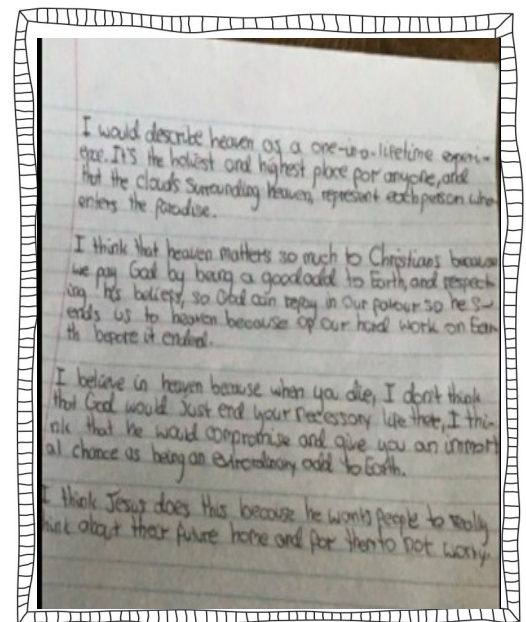 I would describe heaven as a one-in-a-lifetime experi-
ence. It's the holiest and highest place for anyone, and
that the clouds surrounding heaven, represent each person who
enters the Paradise.
I think that heaven matters so much to Christians because
we pay God by being a good add to Earth, and respect-
ing his beliefs, so God can repay in our favour so he s-
ends us to heaven because of our hard work on Ear-
th before it ended.
I believe in heaven because when you die, I don't think
that God would Just end your necessary life there, I thi-
nk that he would compromise and give you an immort
al chance as being an extrordinary add to Earth.
I think Jesus does this because he wants people to really
think about their future home and for them to not worry.